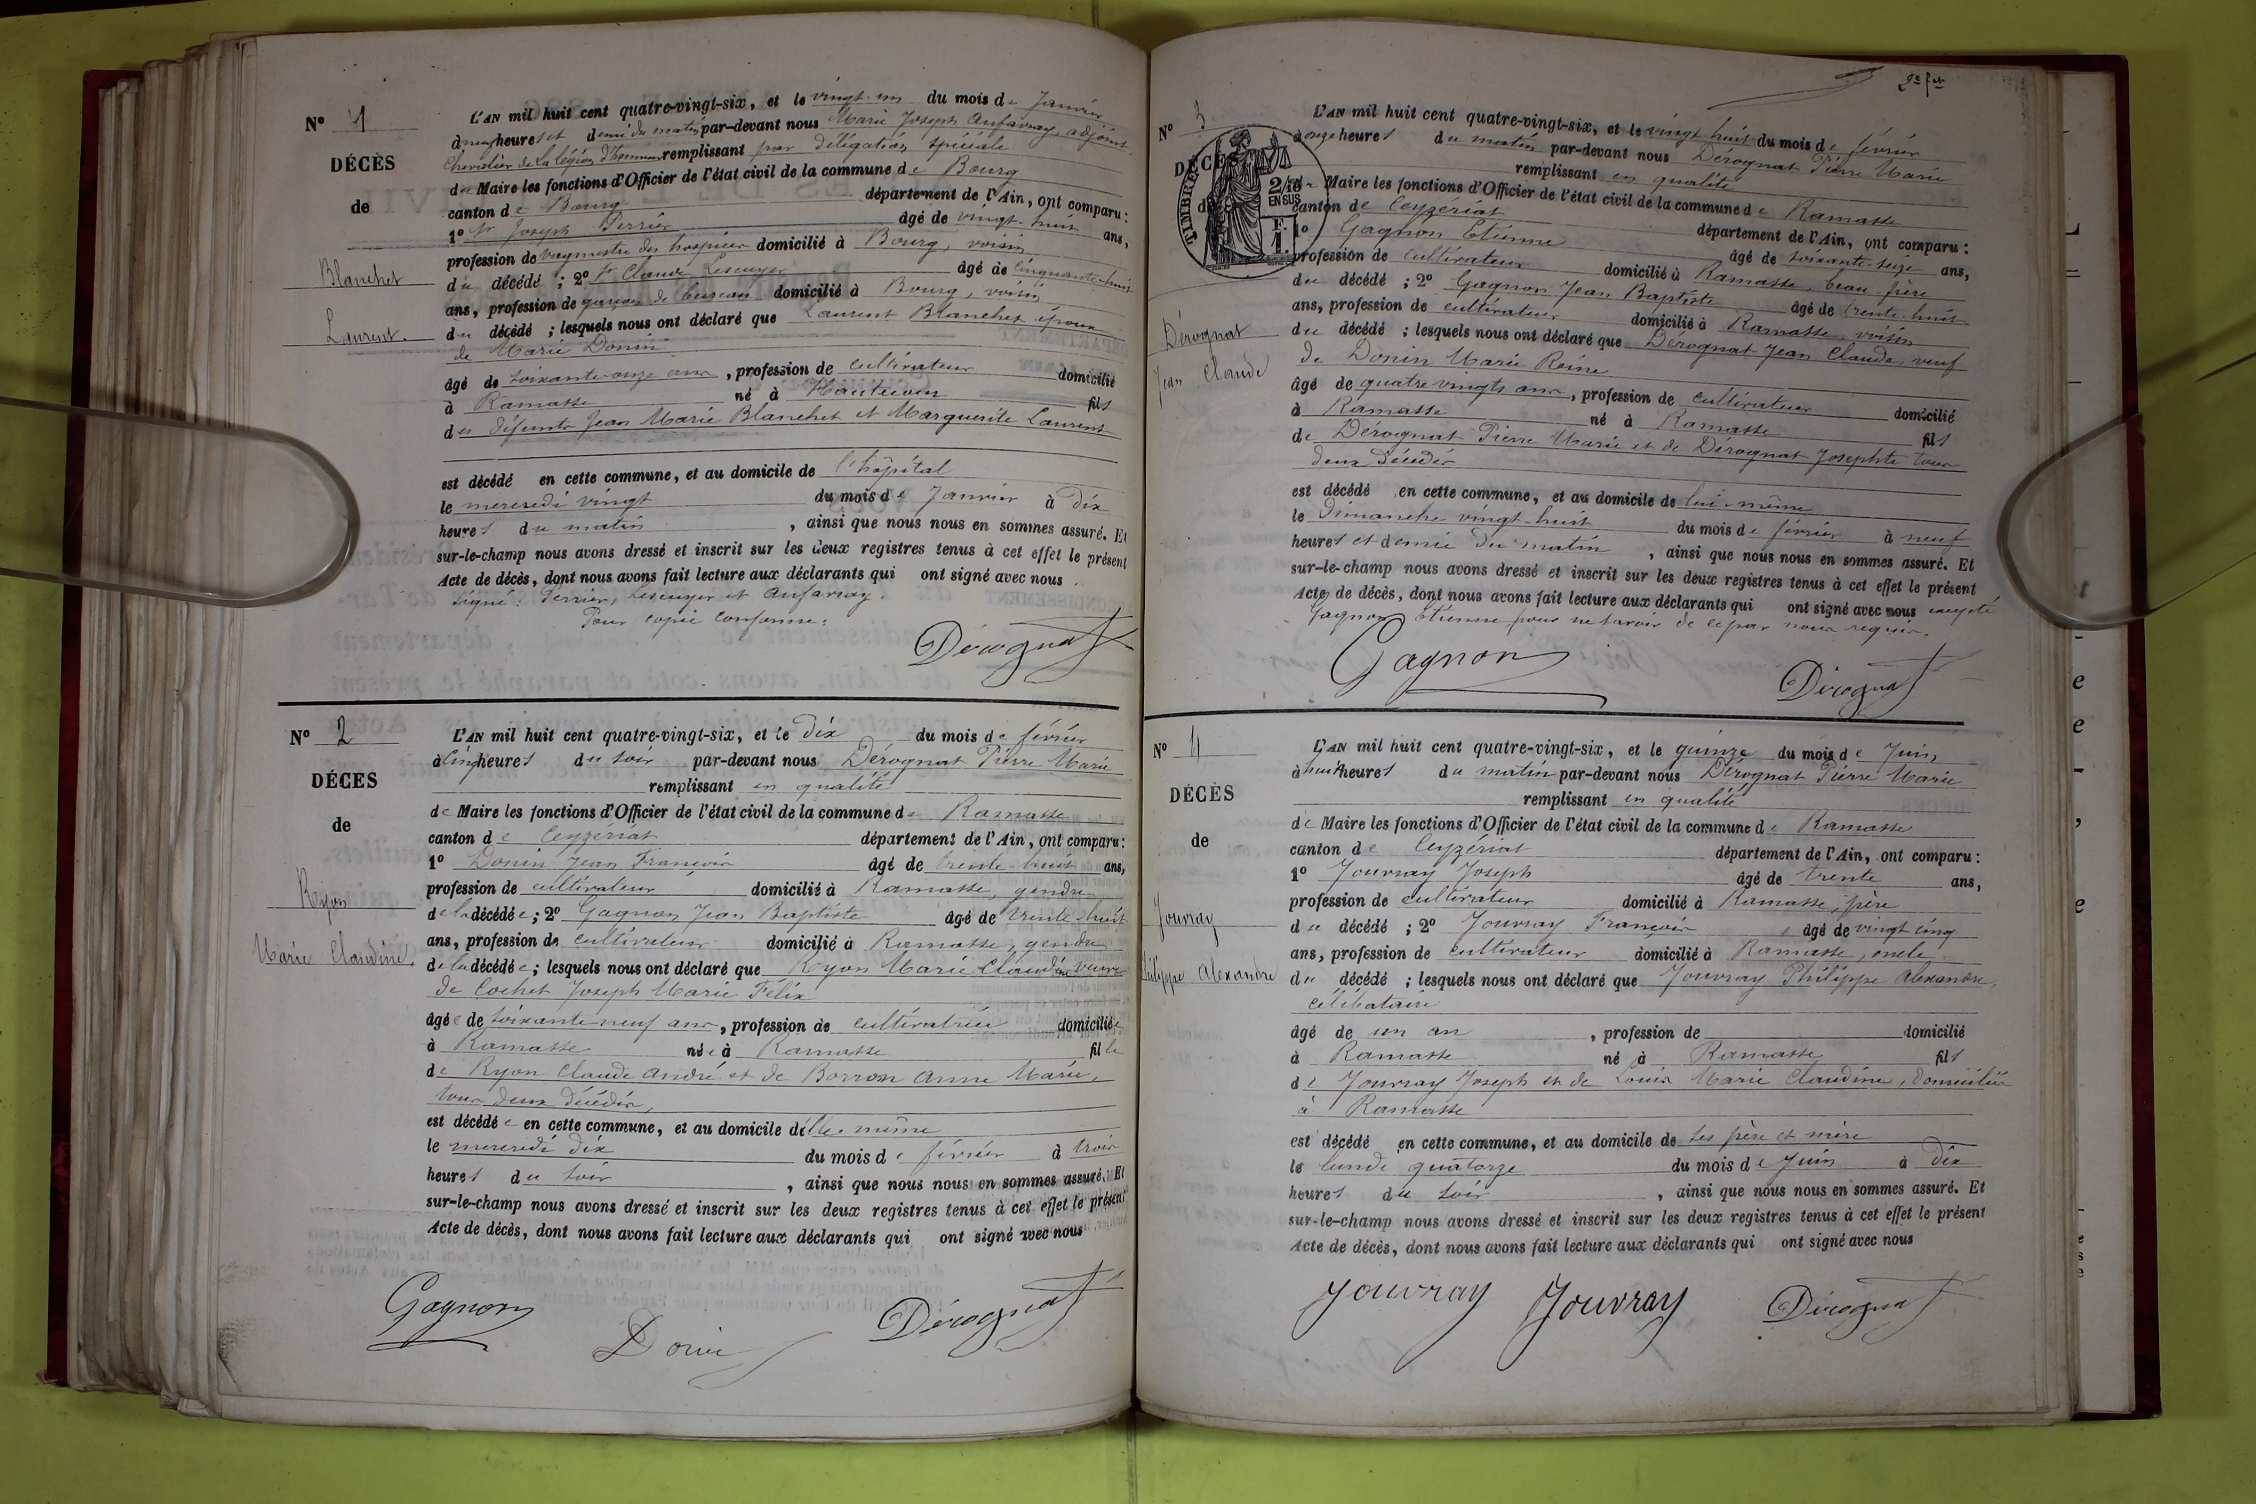 Nº 1
DÉCÈS
de
Blanchet
Laurent.
L'AN mil huit cent quatre-vingt-six, et le vingt-un du mois de Janvier
à neuf heures et demi du matin par-devant nous Marie Joseph Aufavray, adjoint,
Chevalier de la légion d'honneur remplissant par délégation spéciale
du Maire les fonctions d'Officier de l'état civil de la commune de Bourg
canton de Bourg département de l'Ain, ont comparu :
1º Sr Joseph Perrier âgé de vingt-huit ans,
profession de vaguemestre des hospices domicilié à Bourg, voisin
du décédé ; 2º Sr Claude Lescuyer âgé de cinquante-huit
ans, profession de garçon de bureau domicilié à Bourg, voisin
du décédé ; lesquels nous ont déclaré que Laurent Blanchet époux
de Marie Donin
âgé de soixante-onze ans, profession de cultivateur domicilié
à Ramasse né à Hautecour fils
des défunts Jean Marie Blanchet et Marguerite Laurent
est décédé en cette commune, et au domicile de l'hôpital
le mercredi vingt du mois de Janvier à dix
heures du matin, ainsi que nous nous en sommes assuré. Et
sur-le-champ nous avons dressé et inscrit sur les deux registres tenus à cet effet le présent
Acte de décès, dont nous avons fait lecture aux déclarants qui ont signé avec nous.
Signé : Perrier, Lescuyer et Aufavray.
Pour copie conforme :
Dérognat
Nº 2
DÉCES
de
Ryon
Marie Claudine.
L'AN mil huit cent quatre-vingt-six, et le dix du mois de février
à cinq heures du soir par-devant nous Dérognat Pierre Marie
remplissant en qualité
de Maire les fonctions d'Officier de l'état civil de la commune de Ramasse
canton de Ceyzériat département de l'Ain, ont comparu :
1º Donin Jean François âgé de trente-huit ans,
profession de cultivateur domicilié à Ramasse, gendre
de la décédée ; 2º Gagnon Jean Baptiste âgé de trente-huit
ans, profession de cultivateur domicilié à Ramasse, gendre
de la décédée ; lesquels nous ont déclaré que Ryon Marie Claudine veuve
de Cochet Joseph Marie Félix
âgée de soixante neuf ans, profession de cultivatrice domiciliée
à Ramasse née à Ramasse fille
de Ryon Claude André et de Borron Anne Marie,
tous deux décédés,
est décédée en cette commune, et au domicile d'elle-même
le mercredi dix du mois de février à trois
heures du soir, ainsi que nous nous en sommes assuré. Et
sur-le-champ nous avons dressé et inscrit sur les deux registres tenus à cet effet le présent
Acte de décès, dont nous avons fait lecture aux déclarants qui ont signé avec nous
Gagnon
Donin
Dérognat
2e fet
Nº 3
DÉCÈS
de
TIMBRE
2/10
EN SUS
F.
1.
Dérognat
Jean Claude
L'AN mil huit cent quatre-vingt-six, et le vingt huit du mois de février
à onze heures du matin par-devant nous Dérognat Pierre Marie
remplissant en qualité
de Maire les fonctions d'Officier de l'état civil de la commune de Ramasse
canton de Ceyzériat département de l'Ain, ont comparu :
1º Gagnon Etienne âgé de soixante-seize ans,
profession de cultivateur domicilié à Ramasse, beau-frère
du décédé ; 2º Gagnon Jean Baptiste âgé de trente-huit
ans, profession de cultivateur domicilié à Ramasse, voisin
du décédé ; lesquels nous ont déclaré que Dérognat Jean Claude, veuf
de Donin Marie Reine
âgé de quatre vingts ans, profession de cultivateur domicilié
à Ramasse né à Ramasse fils
de Dérognat Pierre Marie et de Dérognat Josephte tous
deux décédés
est décédé en cette commune, et au domicile de lui-même
le Dimanche vingt-huit du mois de février à neuf
heures et demie du matin, ainsi que nous nous en sommes assuré. Et
sur-le-champ nous avons dressé et inscrit sur les deux registres tenus à cet effet le présent
Acte de décès, dont nous avons fait lecture aux déclarants qui ont signé avec nous excepté
Gagnon Etienne pour ne savoir de ce par nous requis.
Gagnon
Dérognat
Nº 4
DÉCÈS
de
Jouvray
Philippe Alexandre
L'AN mil huit cent quatre-vingt-six, et le quinze du mois de Juin
à huit heures du matin par-devant nous Dérognat Pierre Marie
remplissant en qualité
de Maire les fonctions d'Officier de l'état civil de la commune de Ramasse
canton de Ceyzériat département de l'Ain, ont comparu :
1º Jouvray Joseph âgé de trente ans,
profession de cultivateur domicilié à Ramasse, père
du décédé ; 2º Jouvray François âgé de vingt cinq
ans, profession de cultivateur domicilié à Ramasse, oncle
du décédé ; lesquels nous ont déclaré que Jouvray Philippe Alexandre,
célibataire
âgé de un an, profession de domicilié
à Ramasse né à Ramasse fils
de Jouvray Joseph et de Louis Marie Claudine, domiciliés
à Ramasse
est décédé en cette commune, et au domicile de ses père et mère
le lundi quatorze du mois de Juin à dix
heures du soir, ainsi que nous nous en sommes assuré. Et
sur-le-champ nous avons dressé et inscrit sur les deux registres tenus à cet effet le présent
Acte de décès, dont nous avons fait lecture aux déclarants qui ont signé avec nous
Jouvray
Jouvray
Dérognat